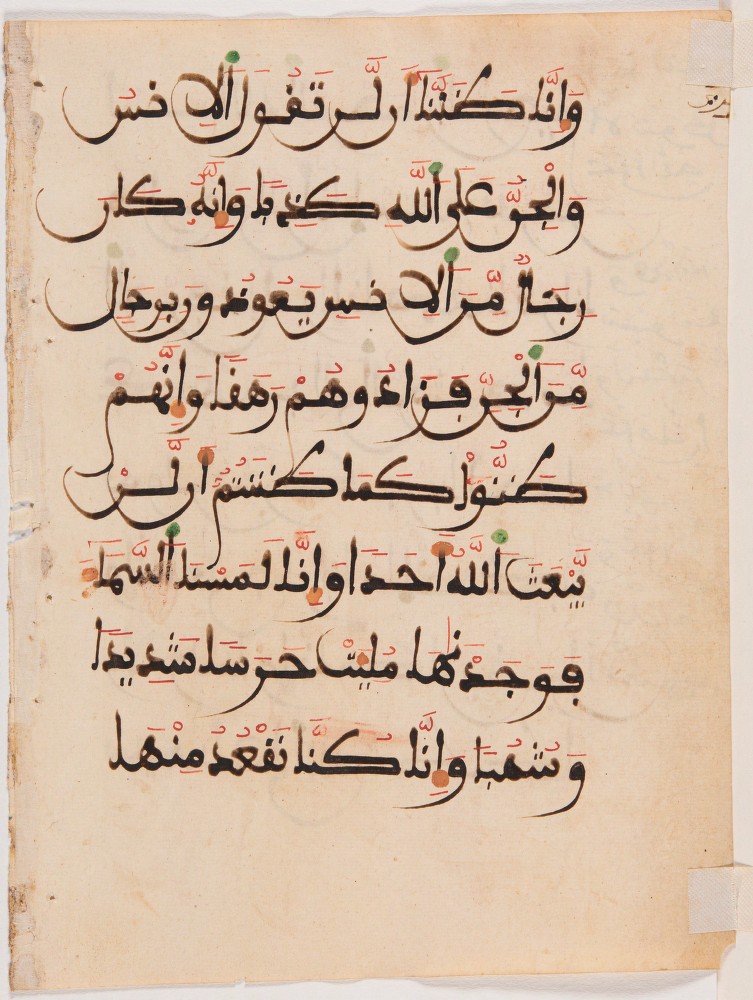 وَإِنَّا ظَنَنَّآ أَن لَّن تَقُولَ ٱلْإِنسُ
وَٱلْجِنُّ عَلَى ٱللَّهِ كَذِبًا وَإِنَّهُۥ كَانَ
رِجَالٌ مِّنَ ٱلْإِنسِ يَعُوذُونَ بِرِجَالٍ
مِّنَ ٱلْجِنِّ فَزَادُوهُمْ رَهَقًا وَإِنَّهُمْ
ظَنُّوا۟ كَمَا ظَنَنتُمُۥٓ أَن لَّنْ
يَّبْعَثَ ٱللَّهُ أَحَدًا وَإِنَّا لَمَسْنَا ٱلسَّمَآءَ
فَوَجَدْنَٰهَا مُلِئَتْ حَرَسًا شَدِيدًا
وَشُهُبًا وَإِنَّا كُنَّا نَقْعُدُ مِنْهَا